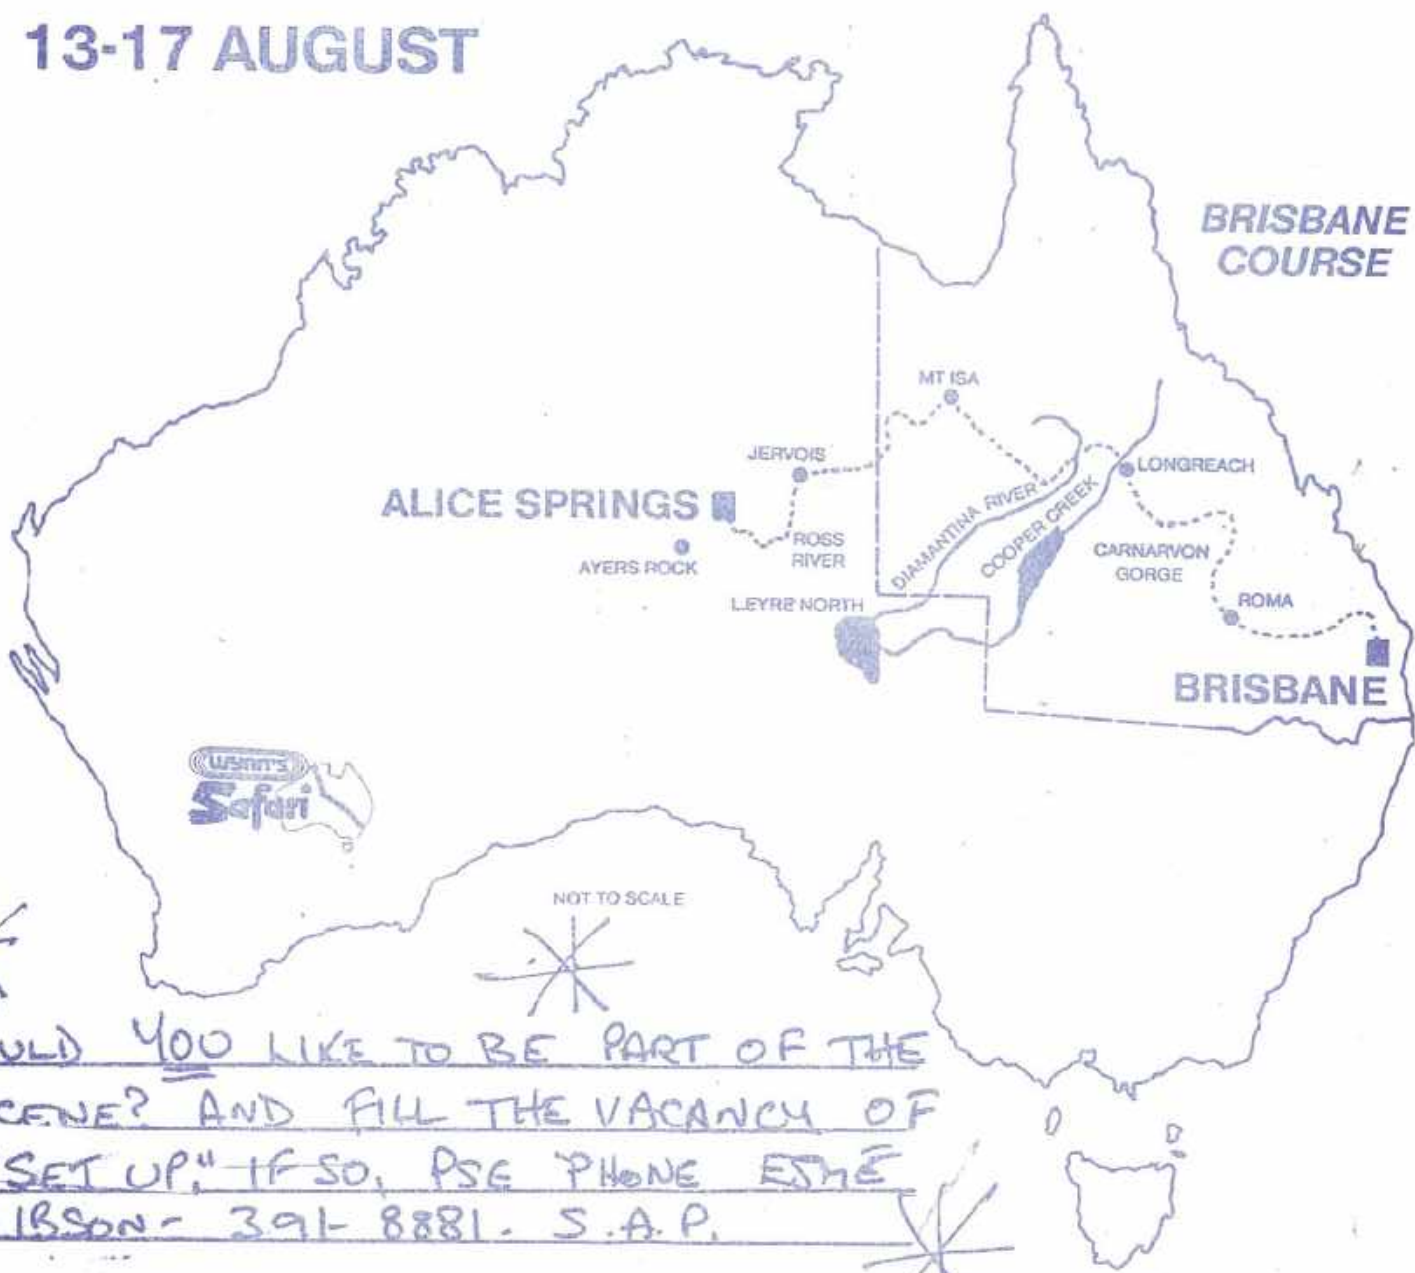 13-17 AUGUST
BRISBANE
COURSE
MT ISA
JERVOIS
LONGREACH
ALICE SPRINGS
DIAMANTINA RIVER
COOPER CREEK
ROSS
RIVER
CARNARVON
GORGE
AYERS ROCK
L.EYRE NORTH
ROMA
BRISBANE
WYNN'S
Safari
NOT TO SCALE
ULD YOU LIKE TO BE PART OF THE
CENE? AND FILL THE VACANCY OF
SET UP." IF SO, PSE PHONE ESMÉ
IBSON - 391-8881. S.A.P.